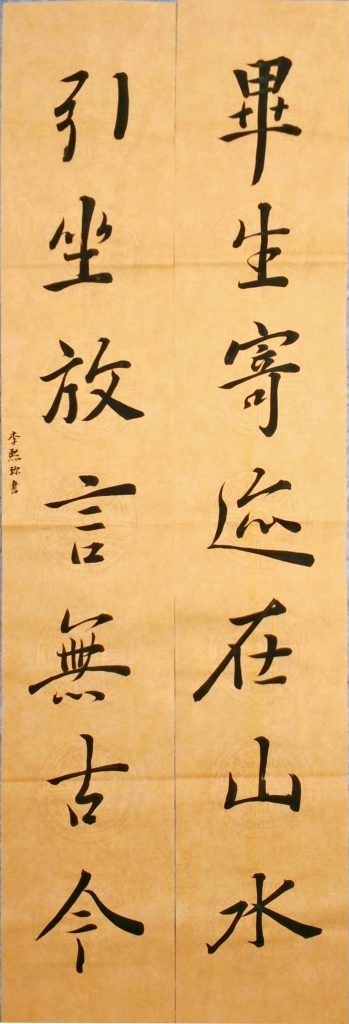 畢生寄迹在山水
引坐放言無古今
李熙珎書